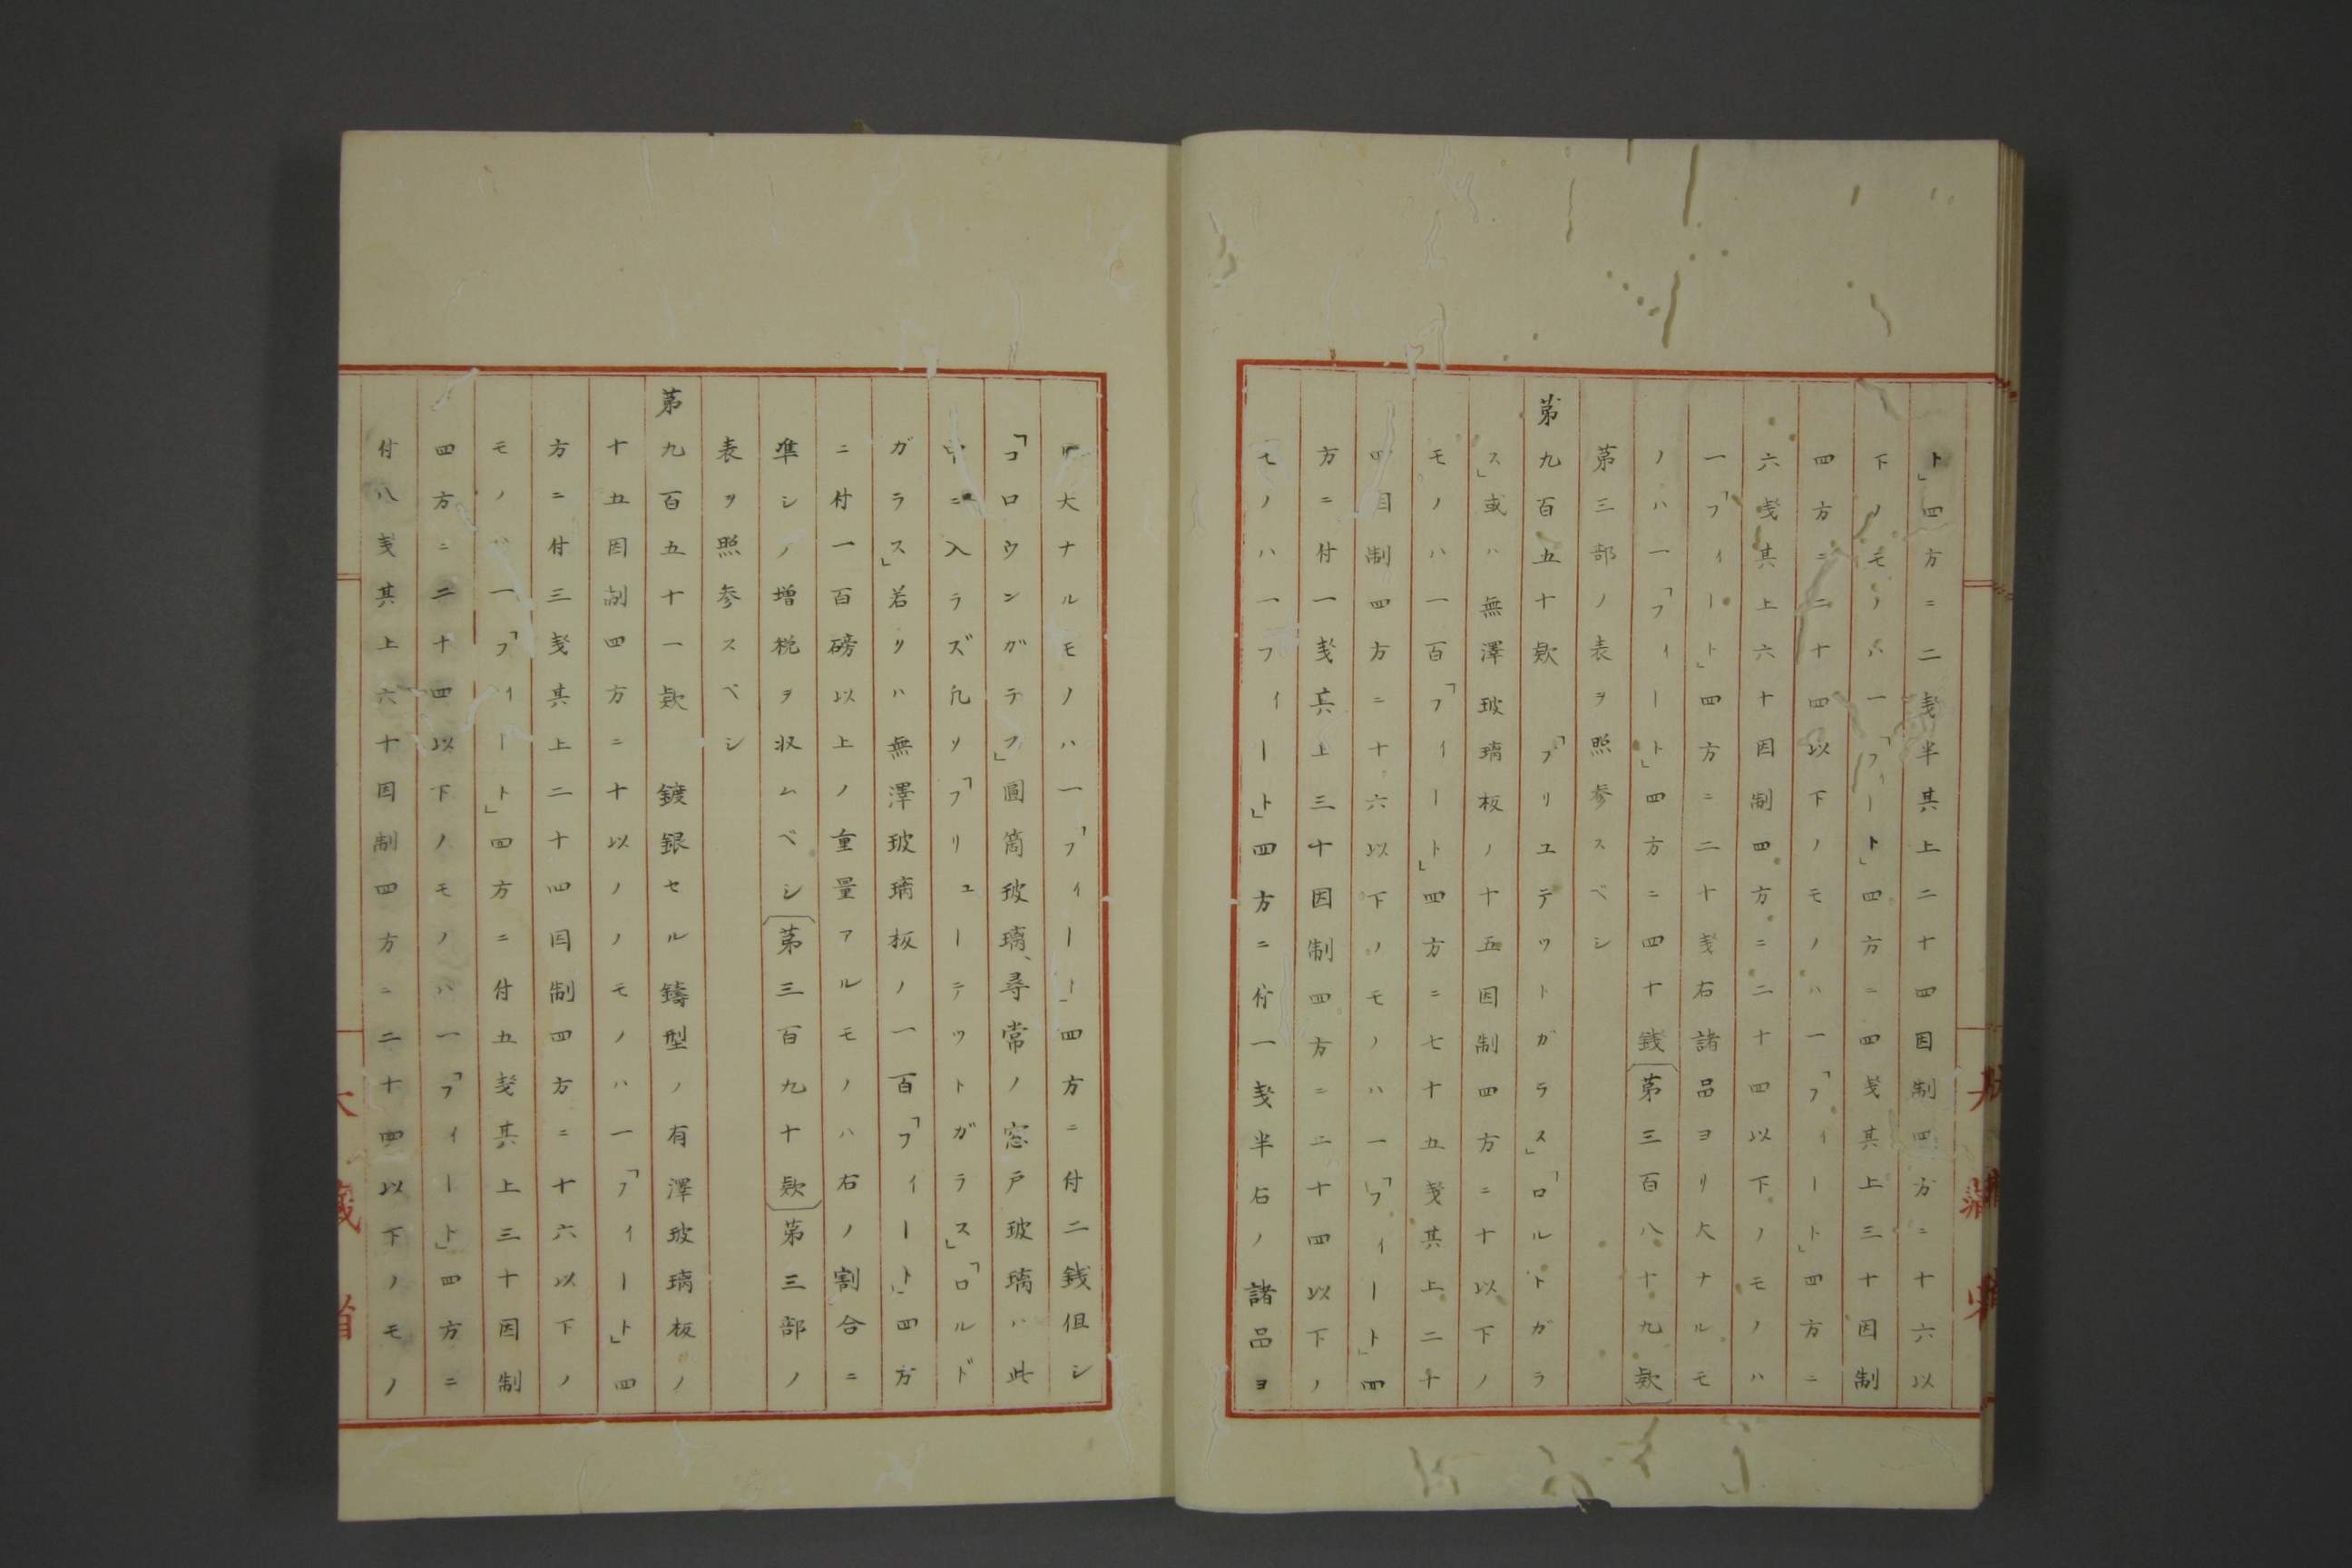 ト」四方ニ二戔半其上二十四因制四方ニ十六以
下ノモノハ一「フィート」四方ニ四戔其上三十因制
四方ニ二十四以下ノモノハ一「フィート」四方ニ
六戔其上六十因制四方ニ二十四以下ノモノハ
一「フィート」四方ニ二十戔右諸品ヨリ大ナルモ
ノハ一「フィート」四方ニ四十銭〔第三百八十九欵〕
第三部ノ表ヲ照参スベシ
第九百五十欵 「フリユテツトガラス」「ロルトガラ
ス」或ハ無澤玻璃板ノ十五因制四方ニ十以下ノ
モノハ一百「フィート」四方ニ七十五戔其上二十
四因制四方ニ十六以下ノモノハ一「フィート」四
方ニ付一戔其上三十因制四方ニ二十四以下ノ
モノハ一フィート」四方ニ付一戔半右ノ諸品ヨ
リ大ナルモノハ一「フィート」四方ニ付二銭但シ
「コロウンガラフ」圓筒玻璃、尋常ノ窓戸玻璃ハ此
中ニ入ラズ凡ソ「フリユーテツトガラス」「ロルド
ガラス」若クハ無澤玻璃板ノ一百「フィート」四方
ニ付一百磅以上ノ重量アルモノハ右ノ割合ニ
準シノ増税ヲ収ムベシ〔第三百九十欵〕第三部ノ
表ヲ照参スベシ
第九百五十一欵 鍍銀セル鑄型ノ有澤玻璃板ノ
十五因制四方ニ十以ノノモノハ一「フィート」四
方ニ付三戔其上二十四因制四方ニ十六以下ノ
モノハ一「フィート」四方ニ付五戔其上三十因制
四方ニ二十四以下ノモノハ一「フィート」四方ニ
付八戔其上六十因制四方ニ二十四以下ノモノ